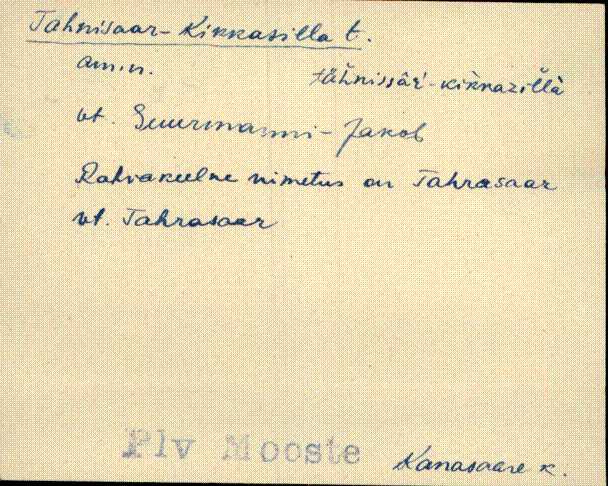 Tahnisaar-Kikkasilla t.
am.n. tähnissār̀-kikkazil̆l̀ä
vt. Suurmanni-Jakob
Rahvakeelne nimetus on Tahrasaar
vt. Tahrasaar
Plv Mooste Kanasaare k.